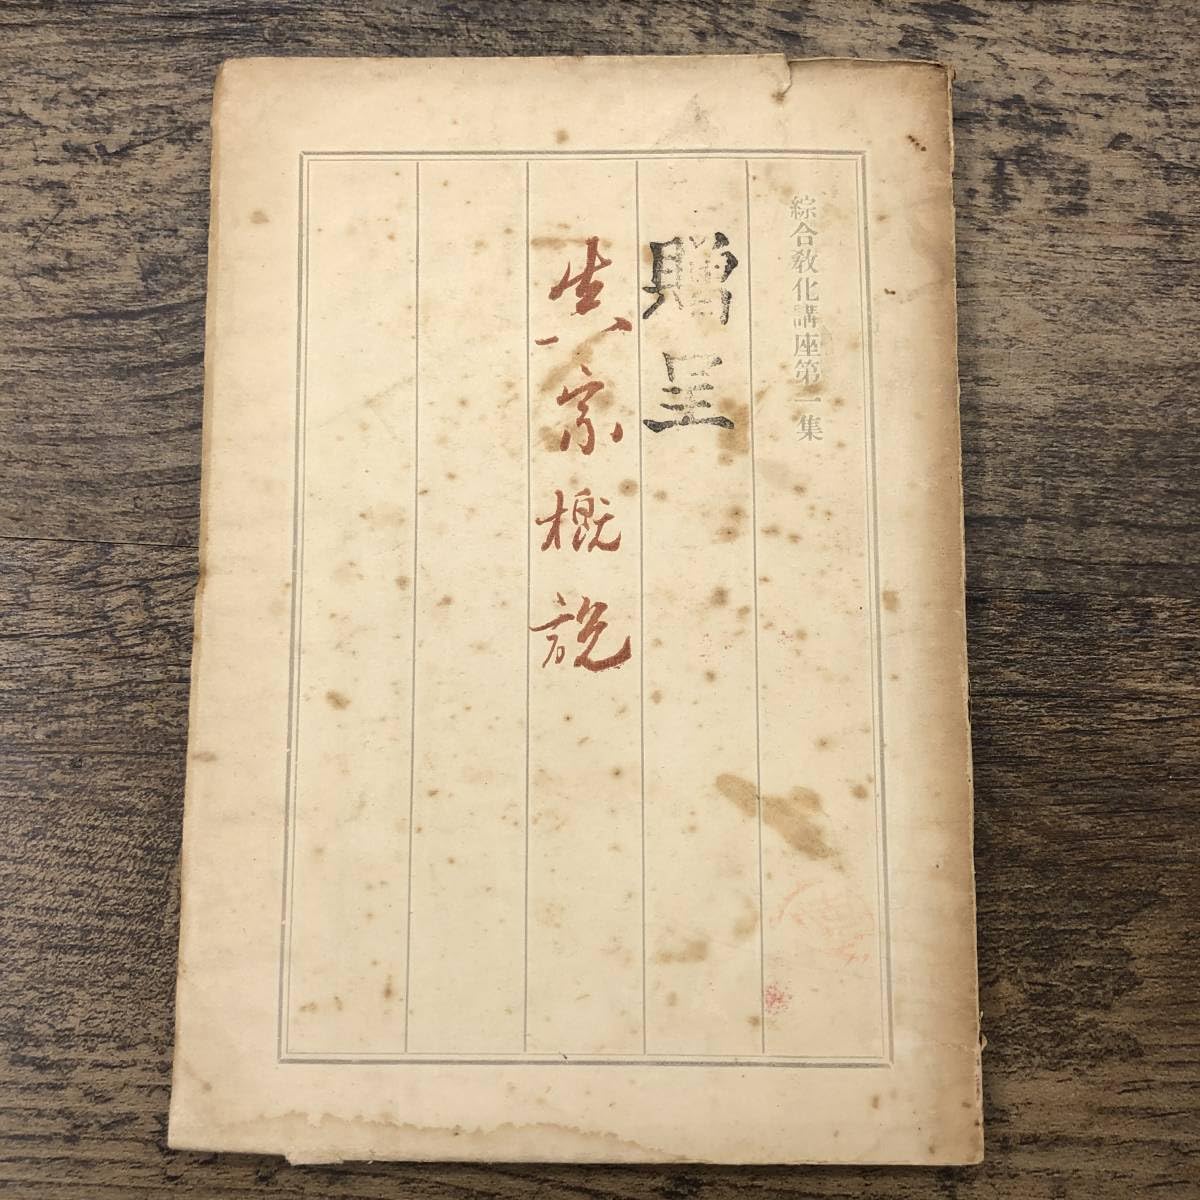 綜合教化講座第一集
贈呈
真宗概説